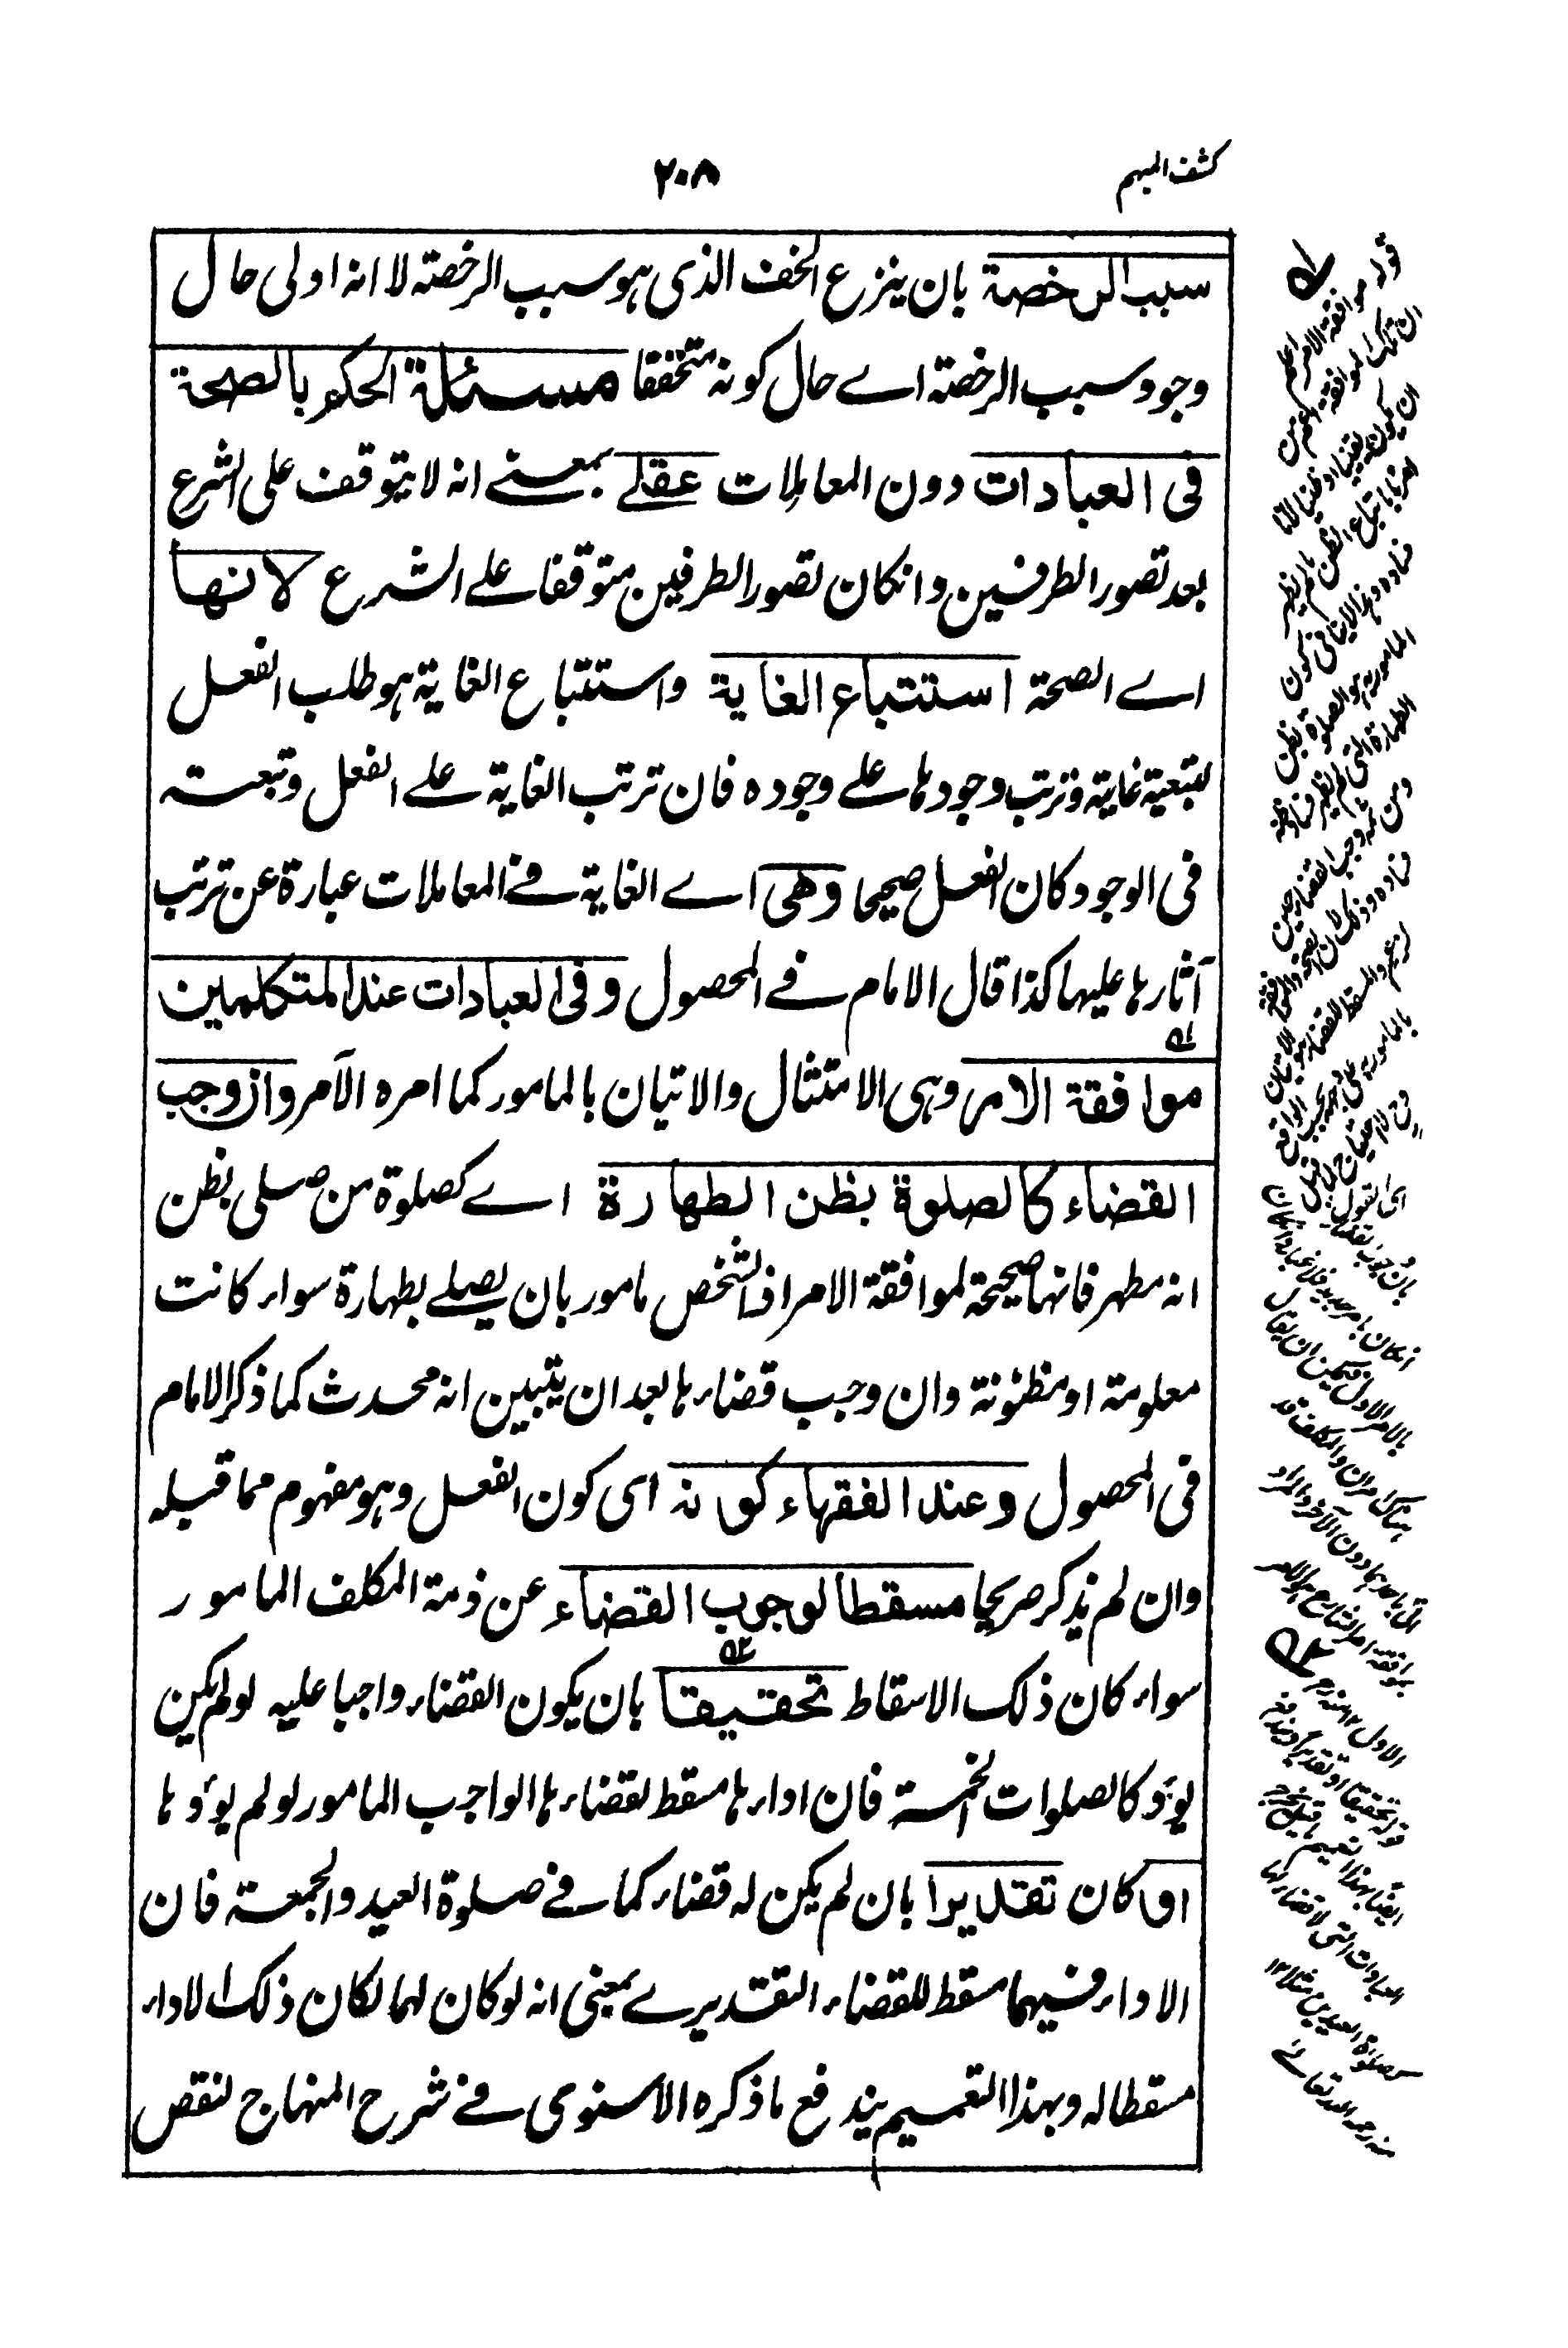 كشف المبهم
٢٠٨
سبب الرخصة بان ينزع الخف الذى هو سبب الرخصة لا انه اولى حال
وجود سبب الرخصة اے حال كونه متخففا مسئلة الحكم بالصحة
فى العبادات دون المعاملات عقلے بمعنے انه لا يتوقف على الشرع
بعد تصور الطرفين وانكان تصور الطرفين متوقفا علے الشرع لانها
اے الصحة استتباع الغاية واستتباع الغاية هو طلب الفعل
لتبعية غاية وترتب وجودها علے وجوده فان ترتب الغاية علے الفعل وتبعته
فى الوجود كان الفعل صحيحا وهى اے الغاية فے المعاملات عبارة عن ترتب
آثارها عليها كذا قال الامام فے المحصول وفى العبادات عند المتكلمين
موافقة الامر وهى الامتثال والاتيان بالمامور كما امره الآمر وان وجب
القضاء كالصلوة بظن الطهارة اے كصلوة من صلى بظن
انه مطهر فانها صحيحة لموافقة الامر اذ الشخص مامور بان يصلے بطهارة سواء كانت
معلومة او مظنونة وان وجب قضاءها بعد ان يتبين انه محدث كما ذكر الامام
فى المحصول وعند الفقهاء كونه اى كون الفعل وهو مفهوم مما قبله
وان لم يذكر صريحا مسقطا لوجوب القضاء عن ذمة المكلف المامور
سواء كان ذلك الاسقاط تحقيقا بان يكون القضاء واجبا عليه لو لم يكن
يؤد كالصلوات الخمسة فان اداءها مسقط لقضاءها الواجب المامور لو لم يؤدها
او كان تقديرا بان لم يكن له قضاء كما فے صلوة العيد والجمعة فان
الاداء فيهما مسقط للقضاء التقديرے بمعنى انه لو كان لهما لكان ذلك الاداء
مسقطا له وبهذا التعميم يندفع ما ذكره الاسنوى فے شرح المنهاج لنقص
قوله موافقة الامر اعلم
ان تلك الموافقة اعم من
ان يكون يقينيا او ظنيا لانا
امرنا باتباع الظن ما لم يظهر
فساده وهذا لا ينافى كون
المامور به هو الصلوة بظن
الطهارة التى لم يظهر فساد ظنه
ومن ثمه وجب القضاء حين
بالمامور به على وجهه بحسب الواقع
بالامر الاول فيمكن ان يقال
بموافقة امر الشارع هو الامر
الاول ١٢ منه رح
قوله تحقيقا او تقديرا
ايضا بهذا التعميم
العبادات التى لا قضاء لها
كصلوة العيدين مثلا ١٢
منه رحمه الله تعالے